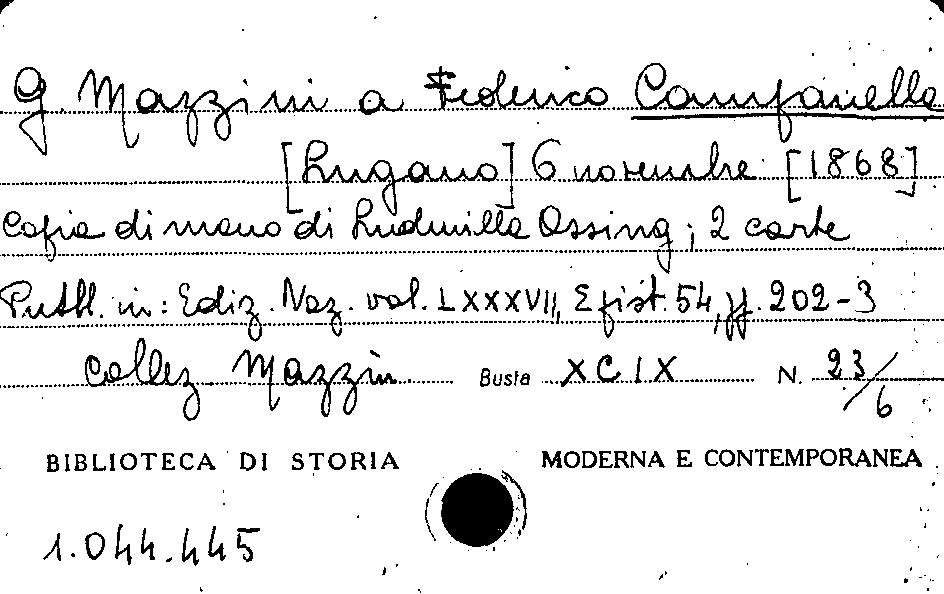 G. Mazzini a Federico Campanella
[Lugano] 6 novembre [1868]
Copia di mano di Ludmilla Assing; 2 carte
Pubbl. in: Ediz. Naz. vol. LXXXVII, Epist. 54, pp. 202-3
Collez Mazzini Busta XCIX N. 23/6
BIBLIOTECA DI STORIA MODERNA E CONTEMPORANEA
1.044.445